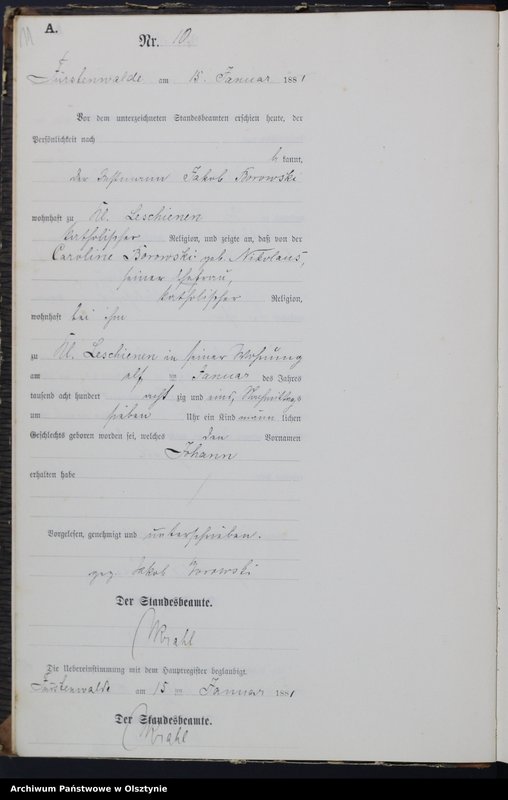 A.
Nr. 10.
Fürstenwalde am 15 Januar 1881
Vor dem unterzeichneten Standesbeamten erschien heute, der
Persönlichkeit nach
kannt,
der Jakob Borowski
wohnhaft zu Kl. Leschienen
katholischer Religion, und zeigte an, daß von der
Caroline Borowski geb. Nikolaus,
seiner Ehefrau,
katholischer Religion,
wohnhaft bei ihm
zu Kl. Leschienen in seiner Wohnung
am elf ten Januar des Jahres
tausend acht hundert acht zig und eins, Nachmittags
um sieben Uhr ein Kind männ lichen
Geschlechts geboren worden sei, welches den Vornamen
Johann
erhalten habe
Vorgelesen, genehmigt und unterschrieben.
gez. Jakob Borowski
Der Standesbeamte.
Wrahl
Die Uebereinstimmung mit dem Hauptregister beglaubigt.
Fürstenwalde am 15 ten Januar 1881
Der Standesbeamte.
Wrahl
Archiwum Państwowe w Olsztynie